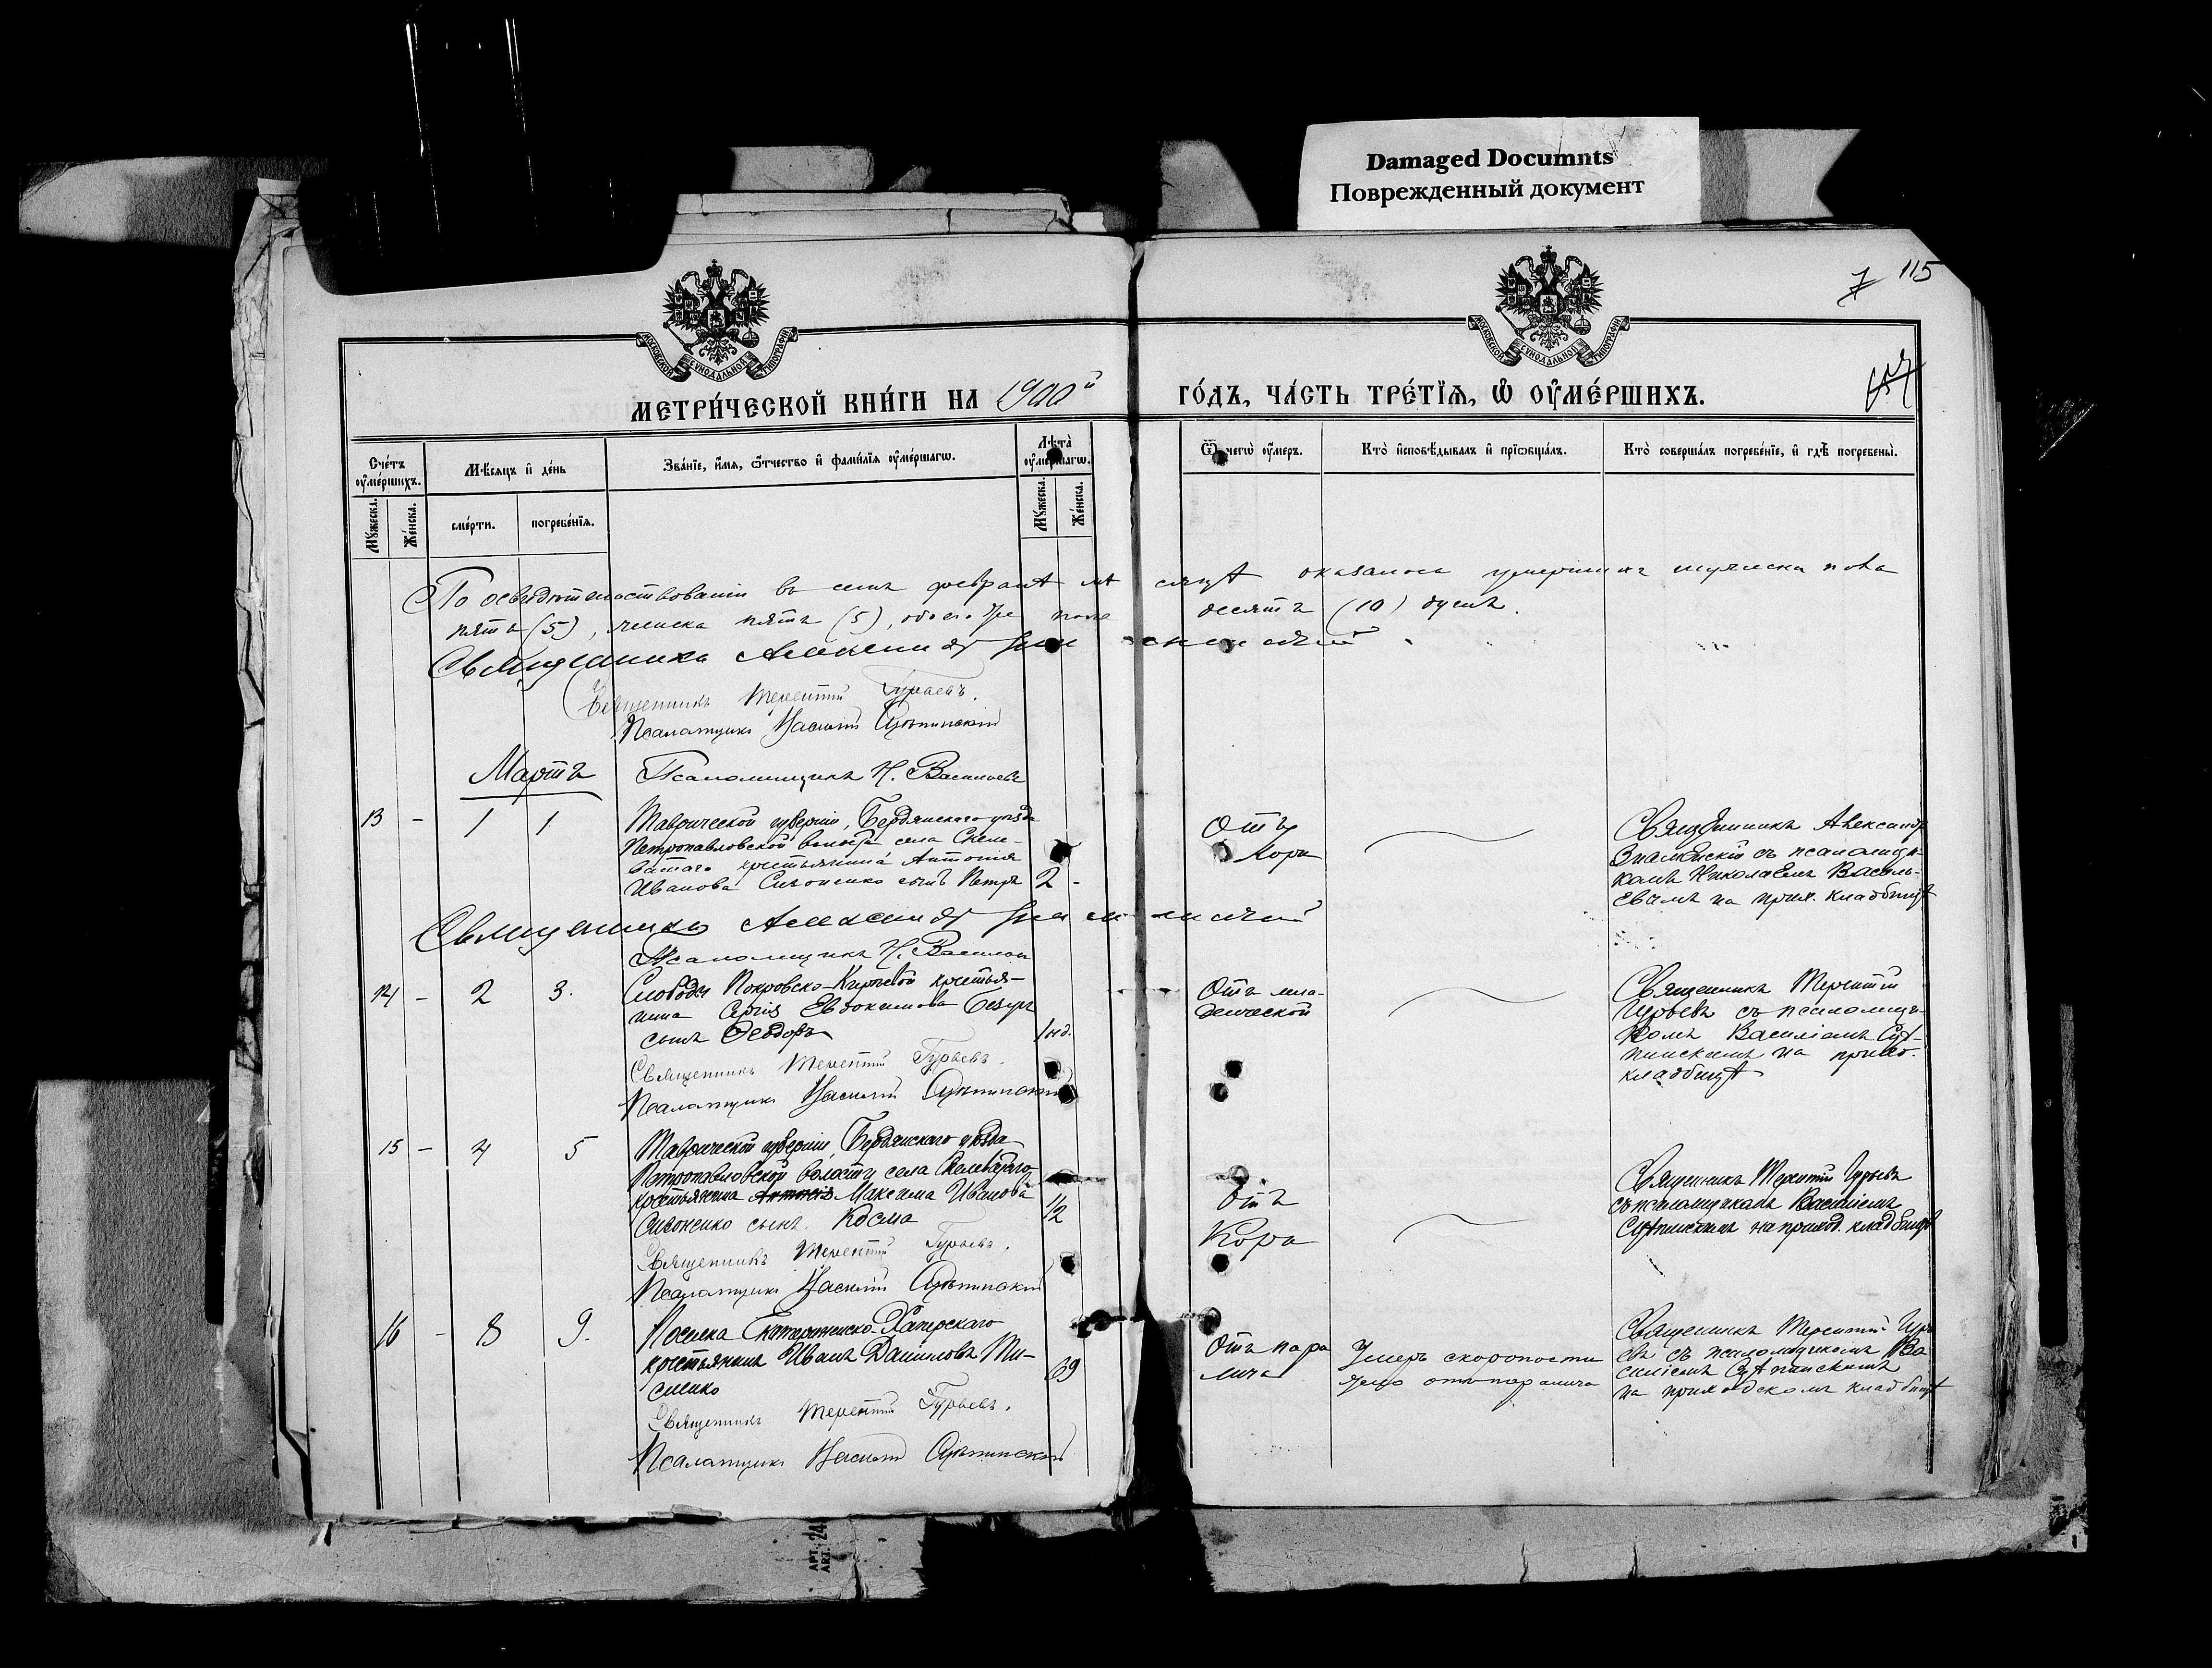 Damaged Documnts
Поврежденный документ
7 115
МОСКОВСКОЙ СУНОДАЛЬНОЙ ТИПОГРАФІИ
МОСКОВСКОЙ СУНОДАЛЬНОЙ ТИПОГРАФІИ
МЕТРИ́ЧЕСКОЙ КНИ́ГИ НА 1900й ГО́ДЪ, ЧА́СТЬ ТРЕ́ТІѦ, Ѽ ОУ҆МЕ́РШИХЪ.
Сче́тъ оу҆ме́ршихъ.
Мꙋ́жеска.
Же́нска.
Мѣ́сяцъ и҆ де́нь
сме́рти.
погребе́нїѧ.
Зва́нїе, и҆́мѧ, ѻ҆́тчество и҆ фами́лїѧ оу҆ме́ршагѡ.
Лѣ́та оу҆ме́ршагѡ.
Мꙋ́жеска.
Же́нска.
Ѿ чегѡ̀ оу҆́меръ.
Кто̀ и҆сповѣ́дывалъ и҆ прїѡбща́лъ.
Кто̀ соверша́лъ погребе́нїе, и҆ гдѣ̀ погребены̀.
По освидѣтельствованіи въ семъ февралѣ мѣсяцѣ оказалось умершихъ мужеска пола
пять (5), женска пять (5), обоего же пола десять (10) душъ.
Священникъ Александръ Знаменскій
Священникъ Терентій Гурьевъ.
Псаломщикъ Василій
Мартъ
Псаломщикъ Н. Васильевъ
13 - 1 1
Таврической губерніи, Бердянскаго уѣзда
Петропавловской волости села Скеле-
ватаго крестьянина Антонія
Иванова сынъ Петръ 2 -
Отъ
Кори
Священникъ Александръ
Знаменскій съ псаломщи-
комъ Николаемъ Василь-
евымъ на прих. кладбищѣ
Священникъ Александръ Знаменскій
Псаломщикъ Н. Васильевъ
14 - 2 3.
Слободы Покровско-Кирѣевой крестья-
нина Сергія Евдокимова
сынъ Ѳеодоръ 1 нд.
Отъ мла-
денческой
Священникъ Терентій
Гурьевъ съ псаломщи-
комъ Василіемъ
на приход.
кладбищѣ
Священникъ Терентій Гурьевъ.
Псаломщикъ Василій
15 - 4 5
Таврической губерніи, Бердянскаго уѣзда
Петропавловской волости села Скелеватаго
крестьянина Антонія Максима Иванова
сынъ Косма 1/2
Отъ
Кори
Священникъ Терентій Гурьевъ
съ псаломщикомъ Василіемъ
на приход. кладбищѣ
Священникъ Терентій Гурьевъ.
Псаломщикъ Василій
16 - 8 9.
Поселка Екатериненско-Хаперскаго
крестьянинъ Иванъ Даниловъ Ми-
сенко 69
Отъ пара
лича
Умеръ скоропости
жно отъ паралича
Священникъ Терентій Гурь
евъ съ псаломщикомъ Ва
силіемъ
на приходскомъ кладбищѣ
Священникъ Терентій Гурьевъ.
Псаломщикъ Василій
АРТ. 24
ART. 24